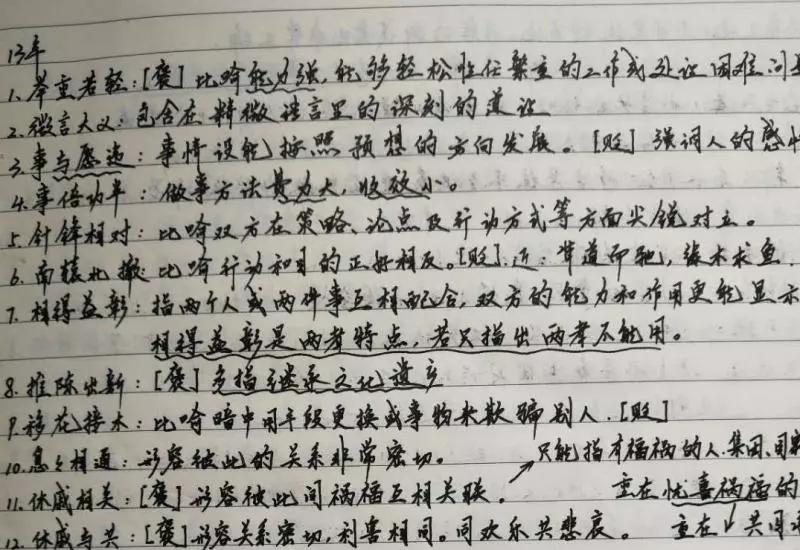 13年
1.举重若轻:[褒] 比喻能力强,能够轻松胜任繁重的工作或处理困难问
2.微言大义:包含在精微语言里的深刻的道理
3.事与愿违:事情没能按照预想的方向发展。[贬] 强调人的感情
4.事倍功半:做事方法费力大,收效小。
5.针锋相对:比喻双方在策略、论点及行动方式等方面尖锐对立。
6.南辕北辙:比喻行动和目的正好相反。[贬].近:背道而驰,缘木求鱼.
7.相得益彰:指两个人或两件事互相配合,双方的能力和作用更能显示
相得益彰是两者特点,若只指出两者不能用。
8.推陈出新:[褒] 多指继承文化遗产
9.移花接木:比喻暗中用手段更换或事物来欺骗别人.[贬]
10.息々相通:形容彼此的关系非常密切。
只能指有福祸的人.集团、国家
11.休戚相关:[褒] 形容彼此间祸福互相关联。 重在忧喜祸福的
12.休戚与共:[褒]形容关系密切,利害相同。同欢乐共悲哀。 重在 共同承